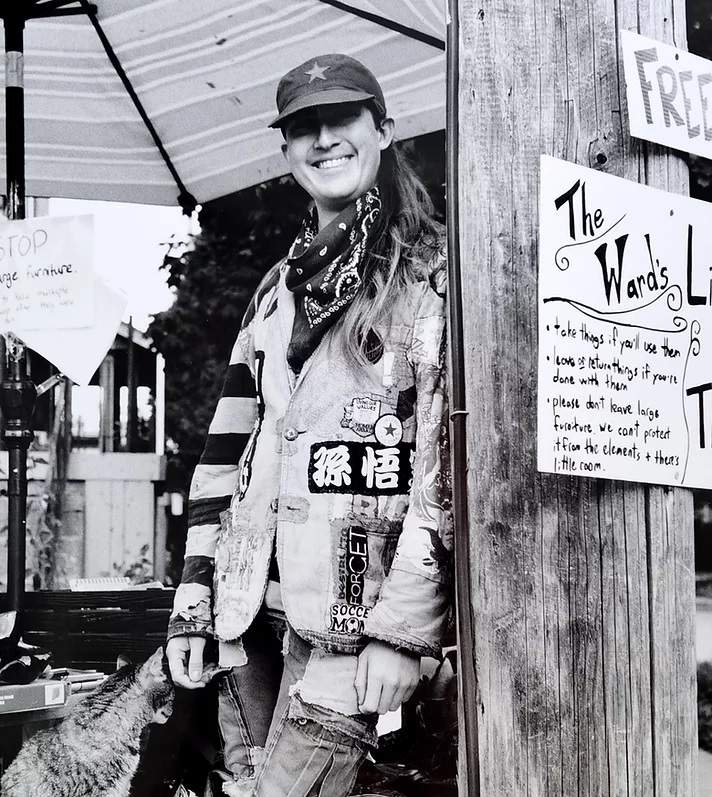 STOP
arge furniture.
FREE
The
Ward's Li
• take things if you'll use them
• leave or return things if you're
done with them
• please don't leave large
furniture. we can't protect
it from the elements + there's
little room.
T
VALUES
孫悟
FORGET
SOCCE
MOM